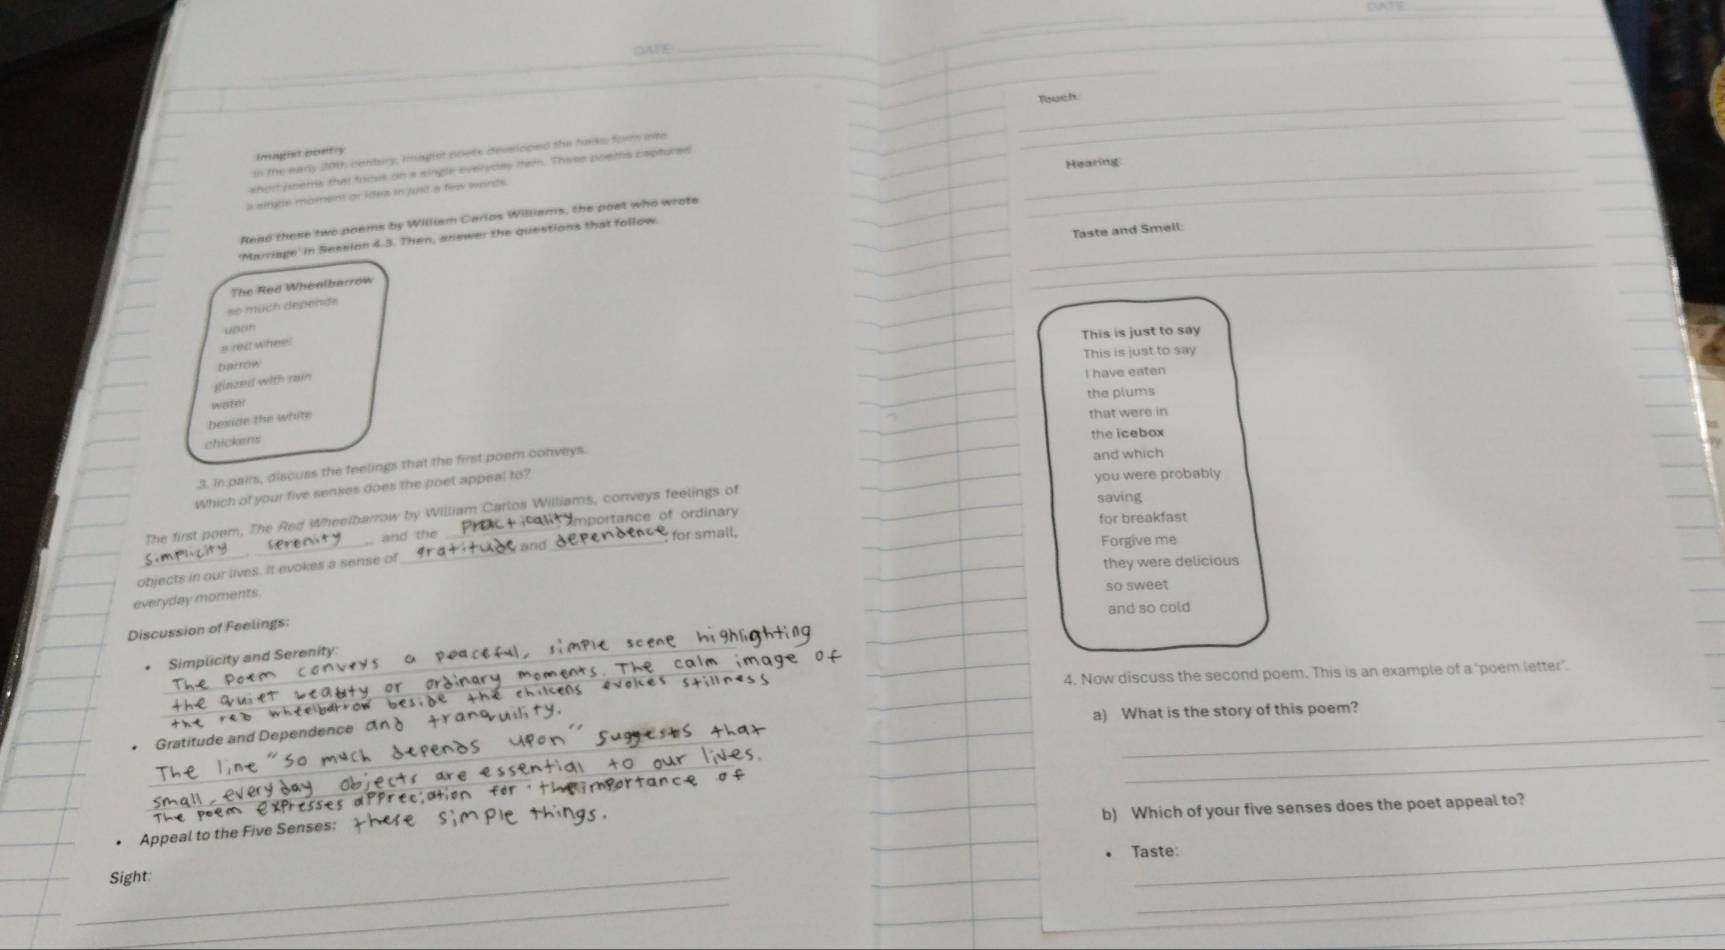 DATE
Imagist poetry
In the early 20th century, imagist poets developed the haiku form into
short poems that focus on a single everyday item. These poems captured
a single moment or idea in just a few words.
Read these two poems by William Carlos Williams, the poet who wrote
'Marriage' in Session 4.3. Then, answer the questions that follow.
The Red Wheelbarrow
so much depends
upon
a red wheel
barrow
glazed with rain
water
beside the white
chickens
3. In pairs, discuss the feelings that the first poem conveys.
Which of your five senses does the poet appeal to?
The first poem, The Red Wheelbarrow by William Carlos Williams, conveys feelings of
simplicity, serenity, and the practicality importance of ordinary
objects in our lives. It evokes a sense of gratitude and dependence for small,
everyday moments.
Discussion of Feelings:
• Simplicity and Serenity:
The poem conveys a peaceful, simple scene highlighting
the quiet beauty or ordinary moments. The calm image of
the red wheelbarrow beside the chikens evokes stillness
and tranquility.
• Gratitude and Dependence
The line "so much depends upon" suggests that
small, everyday objects are essential to our lives.
The poem expresses appreciation for the importance of
these simple things.
• Appeal to the Five Senses:
Sight:
DATE
Touch:
Hearing:
Taste and Smell:
This is just to say
This is just to say
I have eaten
the plums
that were in
the icebox
and which
you were probably
saving
for breakfast
Forgive me
they were delicious
so sweet
and so cold
4. Now discuss the second poem. This is an example of a 'poem letter'.
a) What is the story of this poem?
b) Which of your five senses does the poet appeal to?
• Taste: